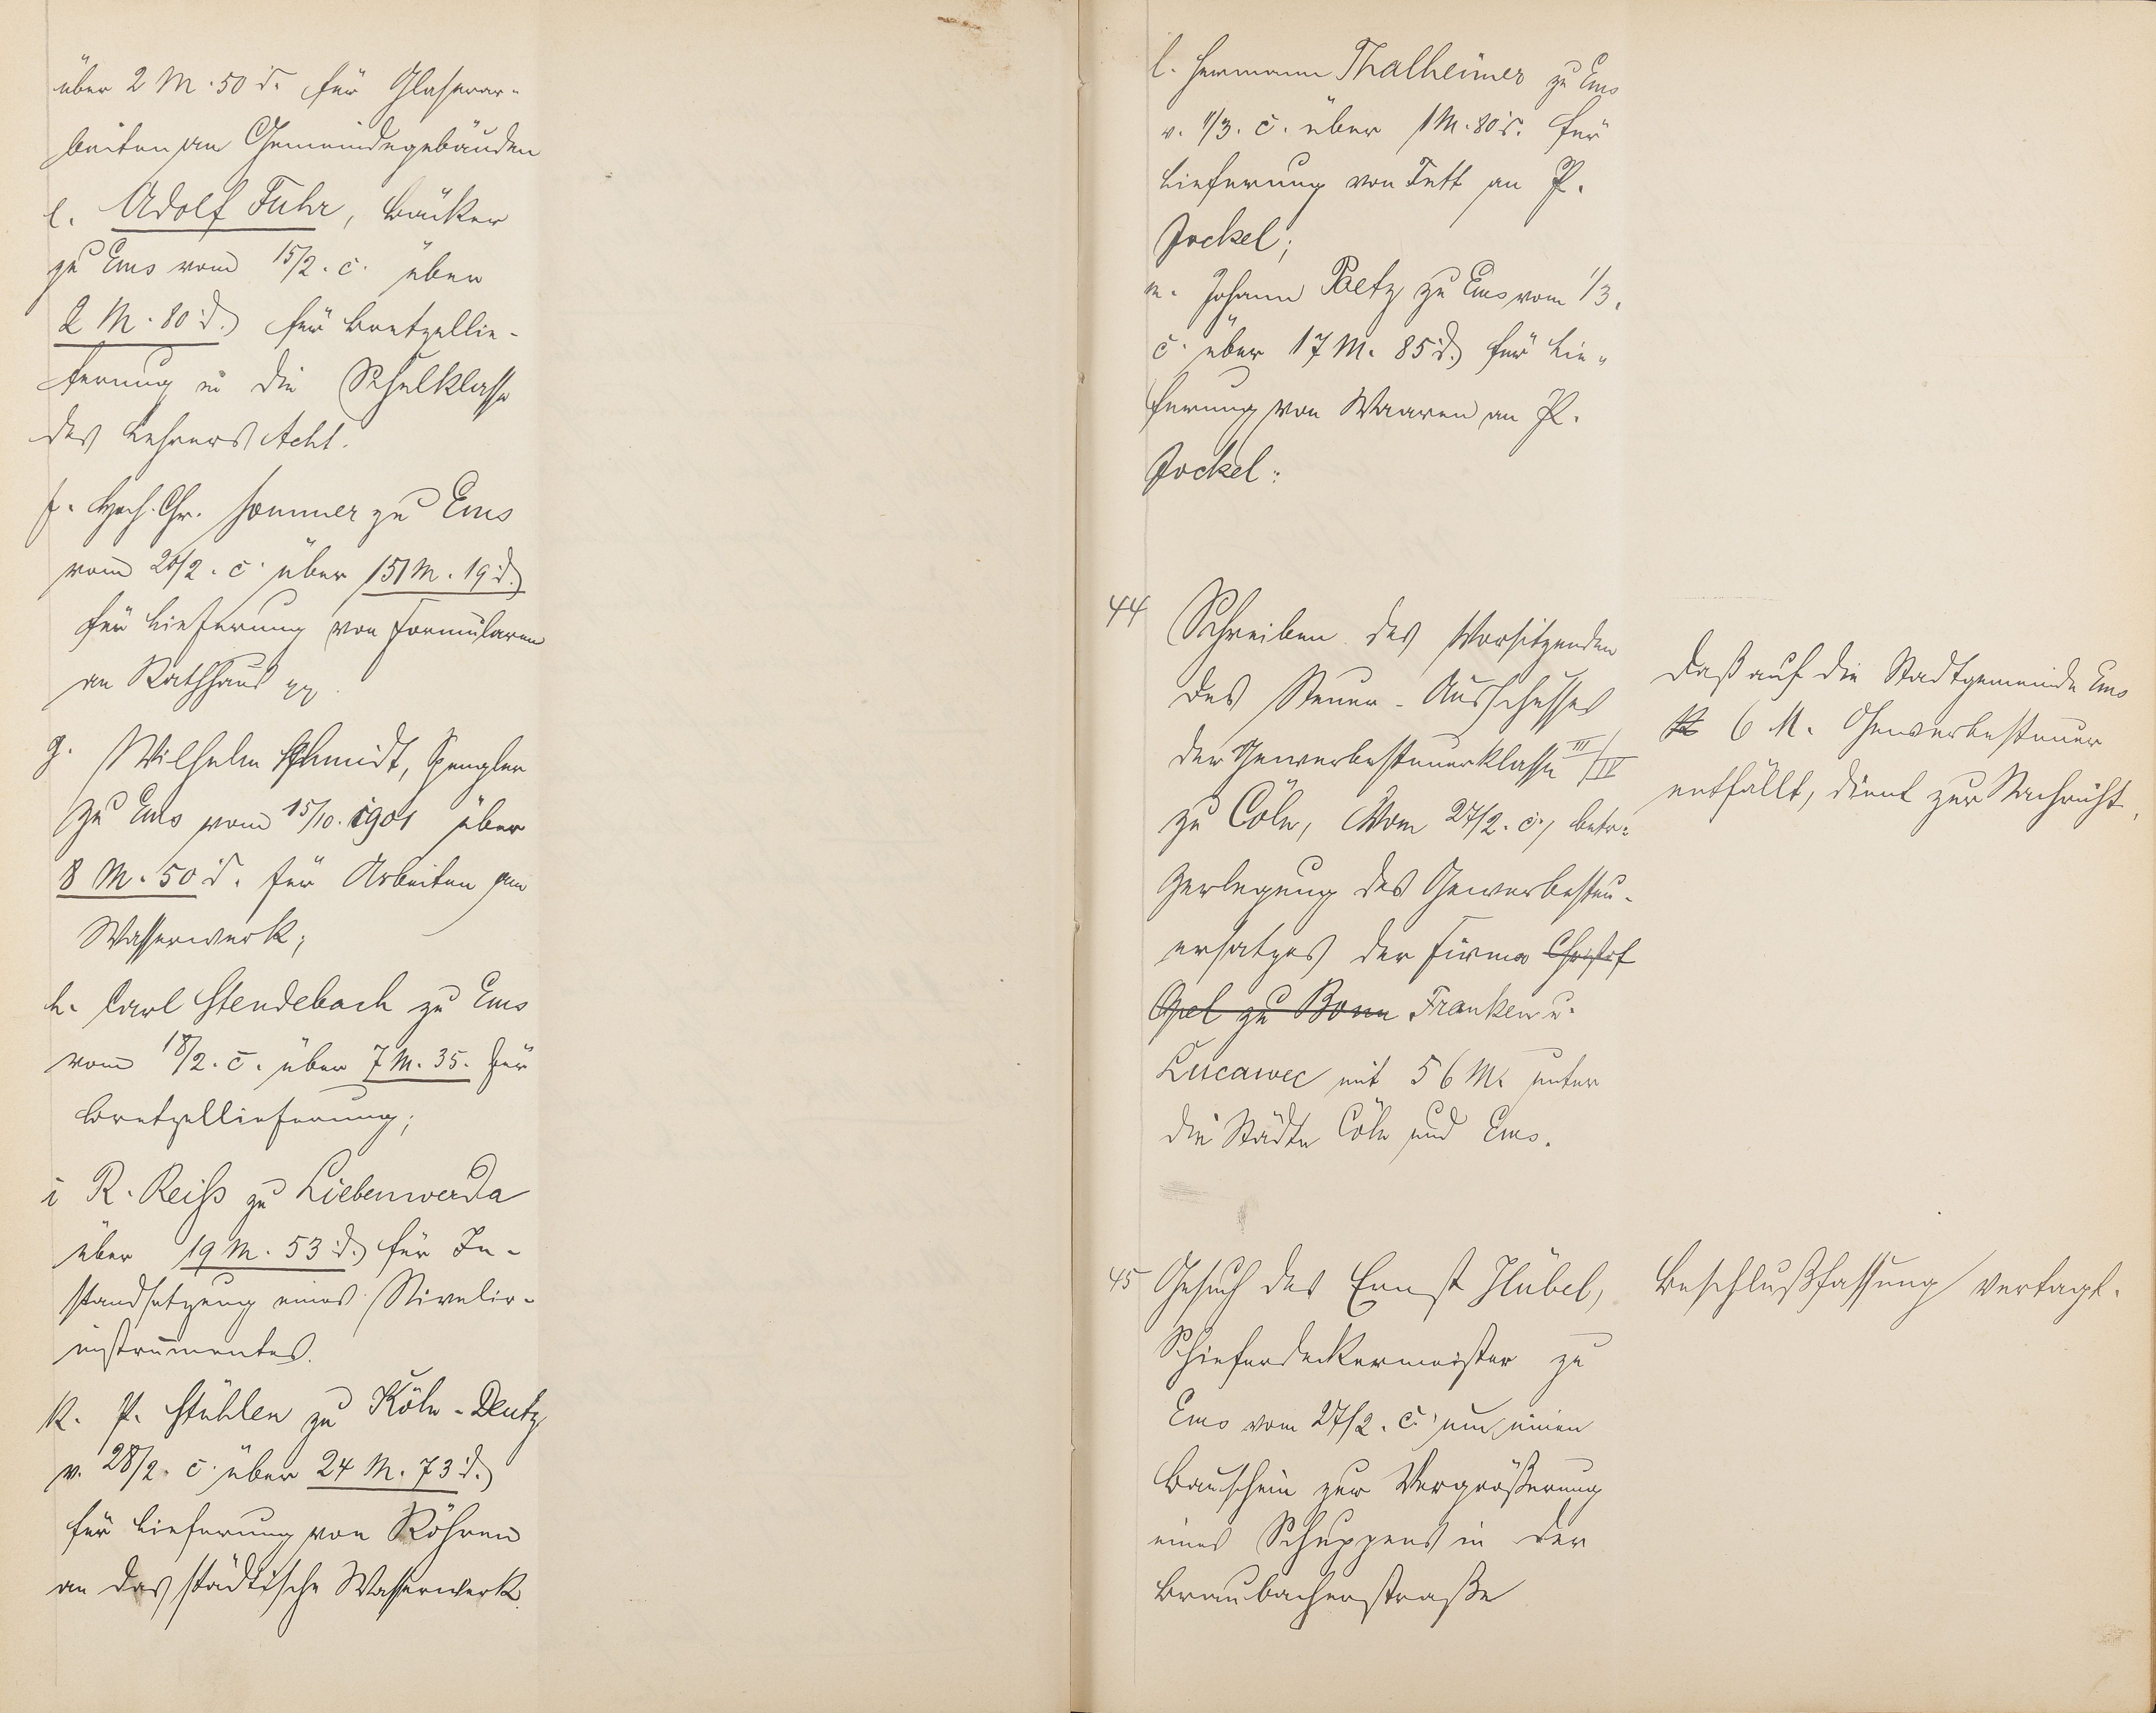 über 2 M. 50 ₰. für Glaserar-
beiten an Gemeindegebäuden
e. Adolf Fuhr, Bäcker
zu Ems vom 15/2. c. über
2 M. 80 ₰. für Bretzellie-
ferung in die Schulklasse
des Lehrers Acht.
f. Hch. Chr. Sommer zu Ems
vom 28/2. c. über 151 M. 19 ₰.
für Lieferung von Formularen
an Rathhaus pp.
g. Wilhelm Schmidt, Spengler
zu Ems vom 15/10. 1901 über
8 M. 50 ₰. für Arbeiten am
Wasserwerk;
h. Carl Stendebach zu Ems
vom 18/2. c. über 7 M. 35. für
Bretzellieferung;
i R. Reiss zu Liebenwerda
über 19 M. 53 ₰. für In-
standsetzung eines Nivelir-
instrumentes.
k. P. Stühlen zu Köln-Deutz
v. 28/2. c. über 24 M. 73 ₰.
für Lieferung von Röhren
an das städtische Wasserwerk.
l. Hermann Thalheimer zu Ems
v. 1/3. c. über 1 M. 80 ₰. für
Lieferung von Fett an P.
Jockel;
m. Johann Paetz zu Ems vom 1/3.
c. über 17 M. 85 ₰. für Lie-
ferung von Waaren an P.
Jockel:
44 Schreiben des Vorsitzenden
des Steuer-Ausschusses
der Gewerbesteuerklasse III/IV
zu Cöln, vom 27/2. c., betr.
Zerlegung des Gewerbesteu-
ersatzes der Firma Christof
Opel zu Bonn Franken u.
Lucawec mit 56 M. unter
die Städte Cöln und Ems.
Daß auf die Stadtgemeinde Ems
6 M. Gewerbesteuer
entfällt, dient zur Nachricht.
45 Gesuch des Ernst Hübel,
Schieferdeckermeister zu
Ems vom 27/2. c. um einen
Bauschein zur Vergrößerung
eines Schuppens in der
Braubacherstraße
Beschlußfassung vertagt.